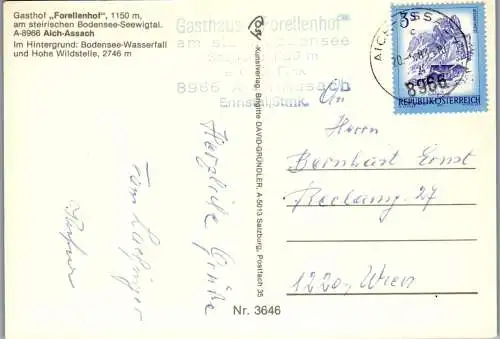 Gasthof „Forellenhof", 1150 m,
am steirischen Bodensee-Seewigtal.
A-8966 Aich-Assach
Im Hintergrund: Bodensee-Wasserfall
und Hohe Wildstelle, 2746 m
Gasthaus „Forellenhof"
am steir. Bodensee
8966 Aich-Assach
Ennstal, Stmk.
Kunstverlag Brigitte DAVID-GRÜNDLER, A-5013 Salzburg, Postfach 35
Nr. 3646
8966
REPUBLIK ÖSTERREICH
Herzliche Grüße
An
Herrn
Bernhart Ernst
Reclamg. 27
1220, Wien